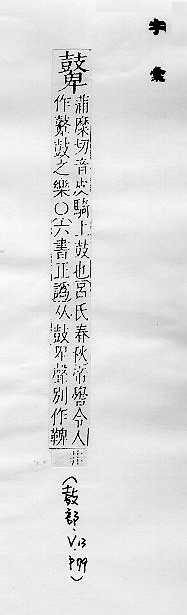 字彙
鼙
蒲糜切音皮騎上鼓也呂氏春秋帝嚳令人
作鼙鼓之樂○六書正譌从鼓卑聲別作鞞
(鼓部. V.13